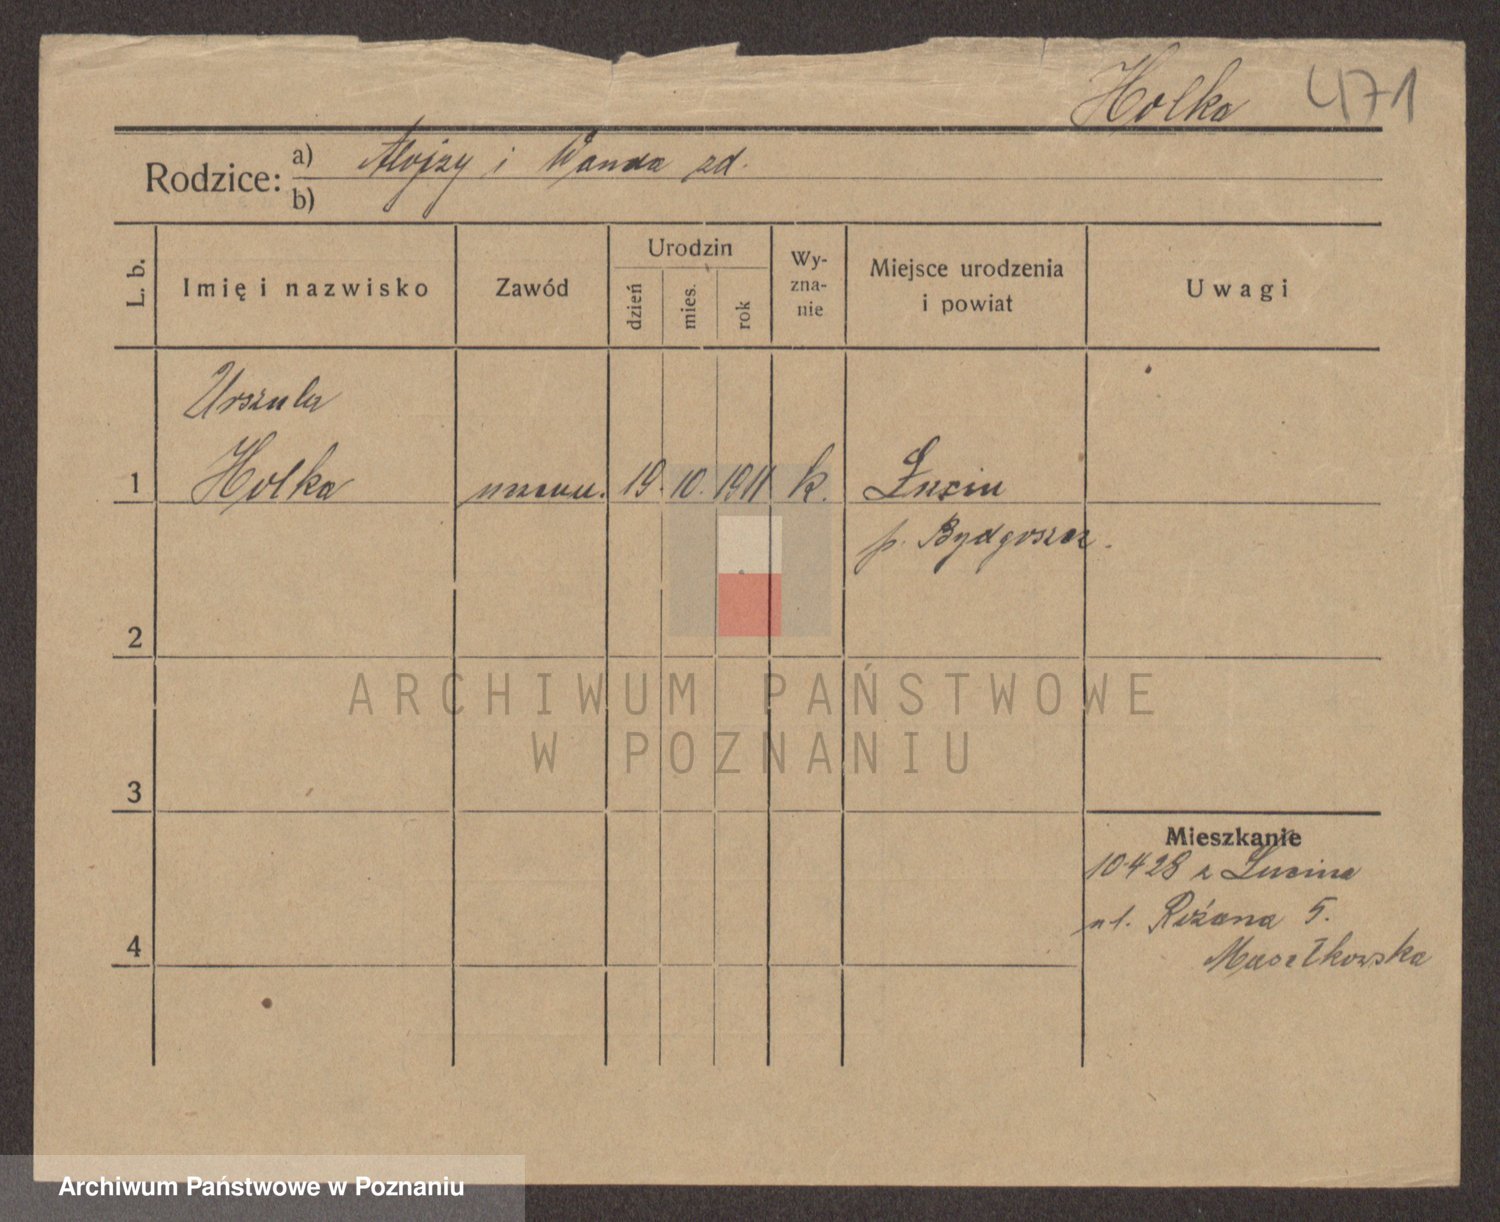 Holka 471
Rodzice: a) Alojzy i Wanda zd.
b)
L. b. Imię i nazwisko Zawód Urodzin dzień mies. rok Wyznanie Miejsce urodzenia i powiat Uwagi
Urszula
1 Holka uczenn. 19. 10. 1911 k.
p. Bydgoszcz.
2
ARCHIWUM PAŃSTWOWE
W POZNANIU
3
Mieszkanie
10428 z
ul. Różana 5.
4
Archiwum Państwowe w Poznaniu